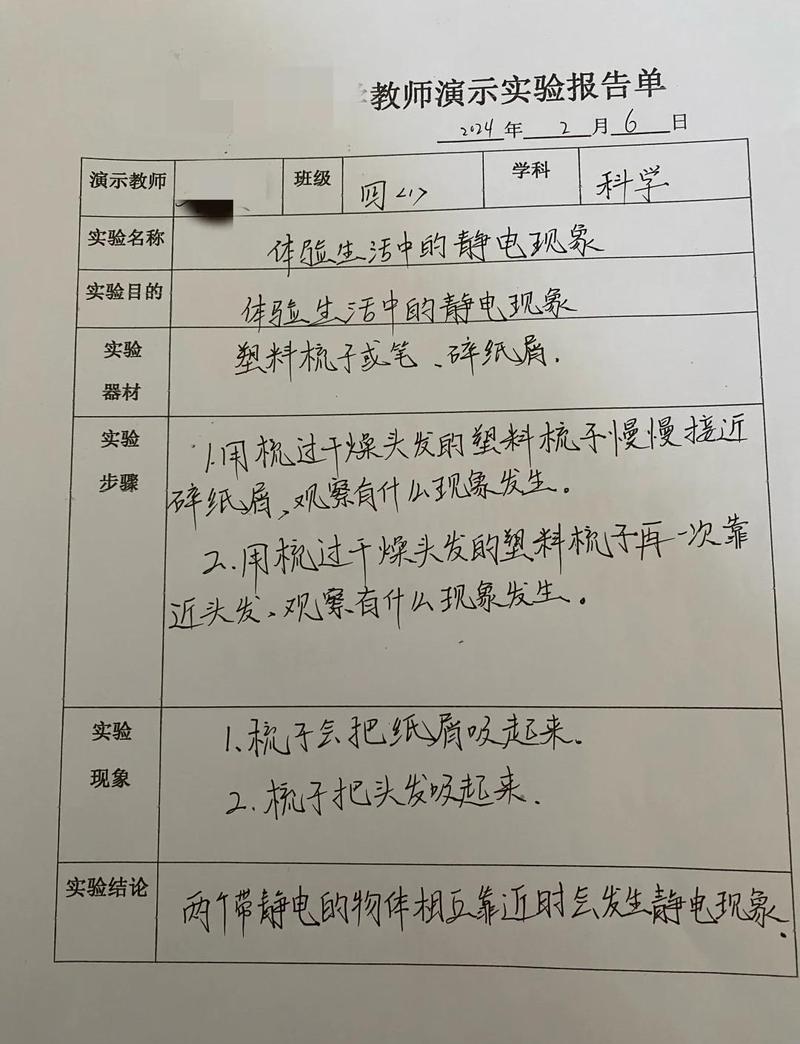 教师演示实验报告单
2024年2月6日
演示教师 班级 四<1> 学科 科学
实验名称 体验生活中的静电现象
实验目的 体验生活中的静电现象
实验器材 塑料梳子或笔、碎纸屑.
实验步骤 1.用梳过干燥头发的塑料梳子慢慢接近
碎纸屑、观察有什么现象发生。
2.用梳过干燥头发的塑料梳子再一次靠
近头发、观察有什么现象发生。
实验现象 1、梳子会把纸屑吸起来.
2.梳子把头发吸起来.
实验结论 两个带静电的物体相互靠近时会发生静电现象.